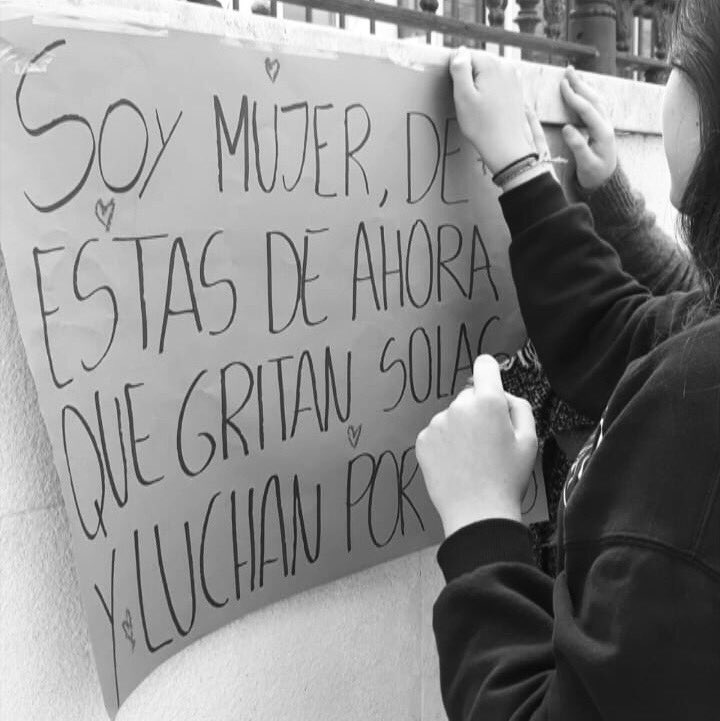 SOY MUJER, DE
ESTAS DE AHORA
QUE GRITAN SOLAS
Y LUCHAN POR